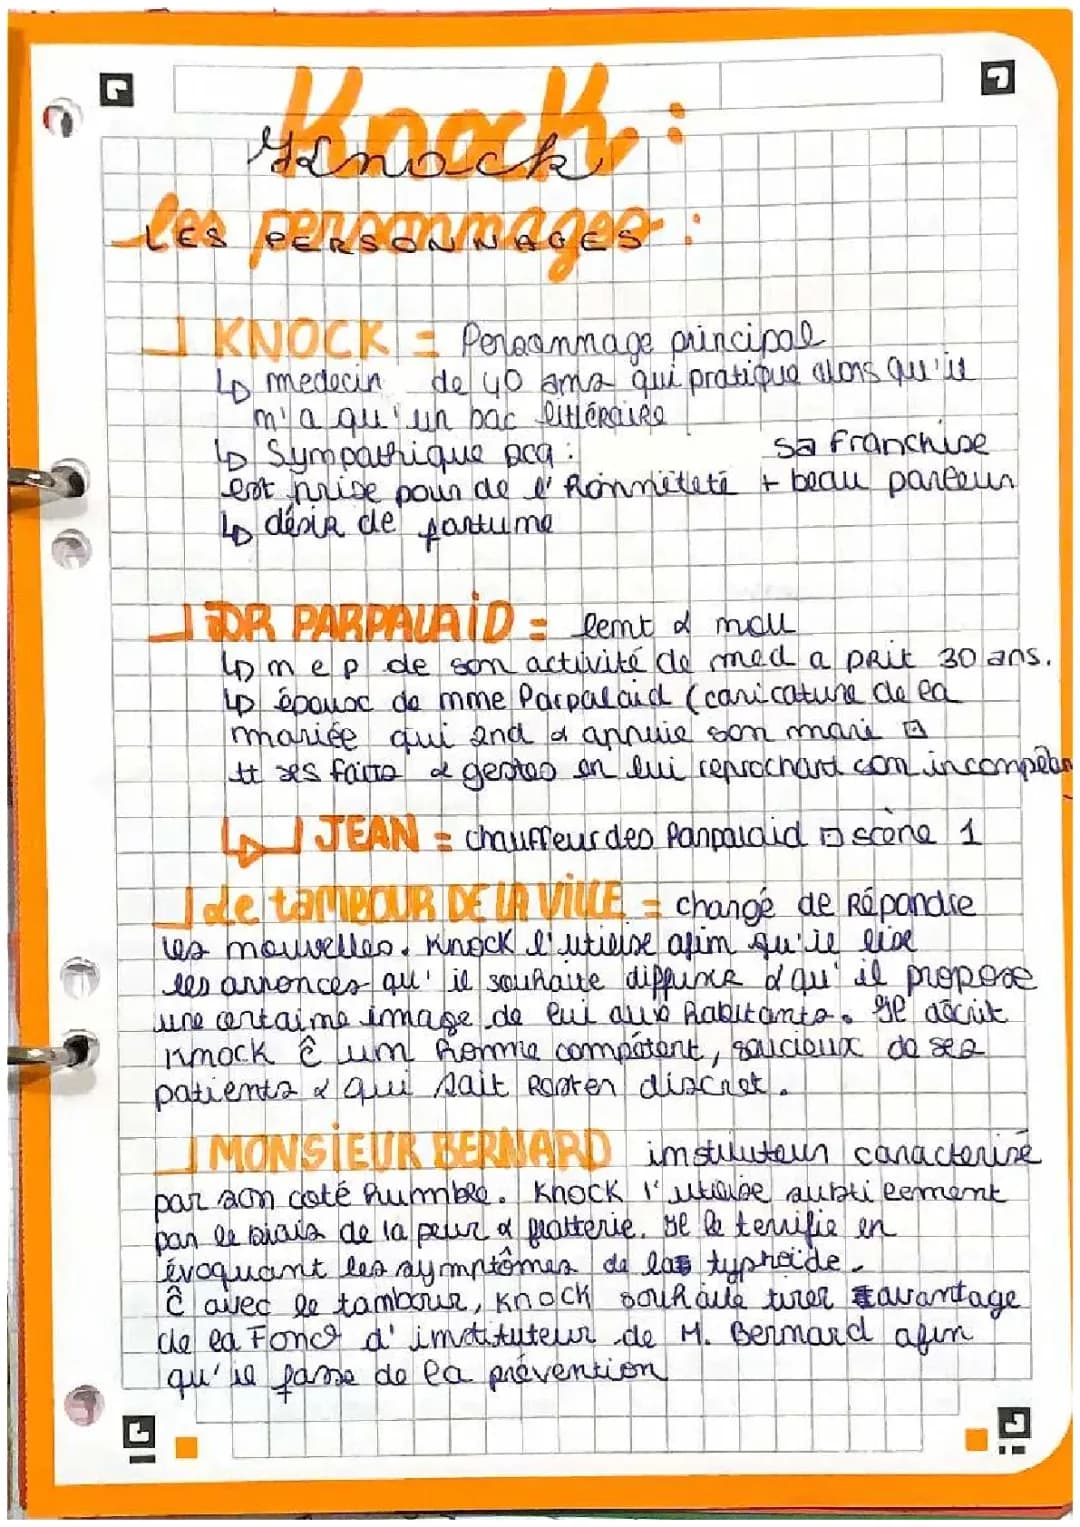 Knock :
Knock
les personnages :
LES PERSONNAGES
KNOCK = Personnage principal
↳ medecin de 40 ans qui pratique alors qu'il
n'a qu'un bac littéraire
↳ Sympathique pcq : sa franchise
est prise pour de l'honnêteté + beau parleur
↳ désir de fortune
DR PARPALAID = lent & mou
↳ m e p de son activité de med a prit 30 ans.
↳ époux de mme Parpalaid (caricature de la
mariée qui end & appuie son mari
tt ses faits & gestes en lui reprochant son incompétan
↳ JEAN = chauffeur des Parpalaid scène 1
Le tamBOUR DE LA VILLE = chargé de Répandre
les nouvelles. Knock l'utilise afin qu'il lise
les annonces qu'il souhaite diffuser & qu'il propose
une certaine image de lui aux habitants. Il décrit
Knock ê un homme compétent, soucieux de ses
patients & qui sait rester discret.
MONSIEUR BERNARD instituteur caracterisé
par son coté humble. Knock l'utilise subtilement
par le biais de la peur & flatterie. Il le terrifie en
évoquant les symptômes de la typhoide.
ê avec le tambour, Knock souhaite tirer avantage
de la Fonc° d'instituteur de M. Bernard afin
qu'il fasse de la prévention